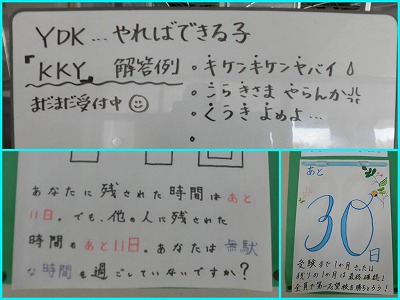 YDK...やればできる子
『KKY』 解答例 ・キケンキケンヤバイ
まだまだ受付中 ・こらきさまやらんか
・くうきよめよ…
・
あなたに残された時間はあと
11日。でも、他の人に残された
時間もあと11日。あなたは無駄
な時間を過ごしていないですか?
あと
30日
受験まで1か月きったよ
残りの1か月は最終確認!
全員で第一志望校を勝ちとろう!